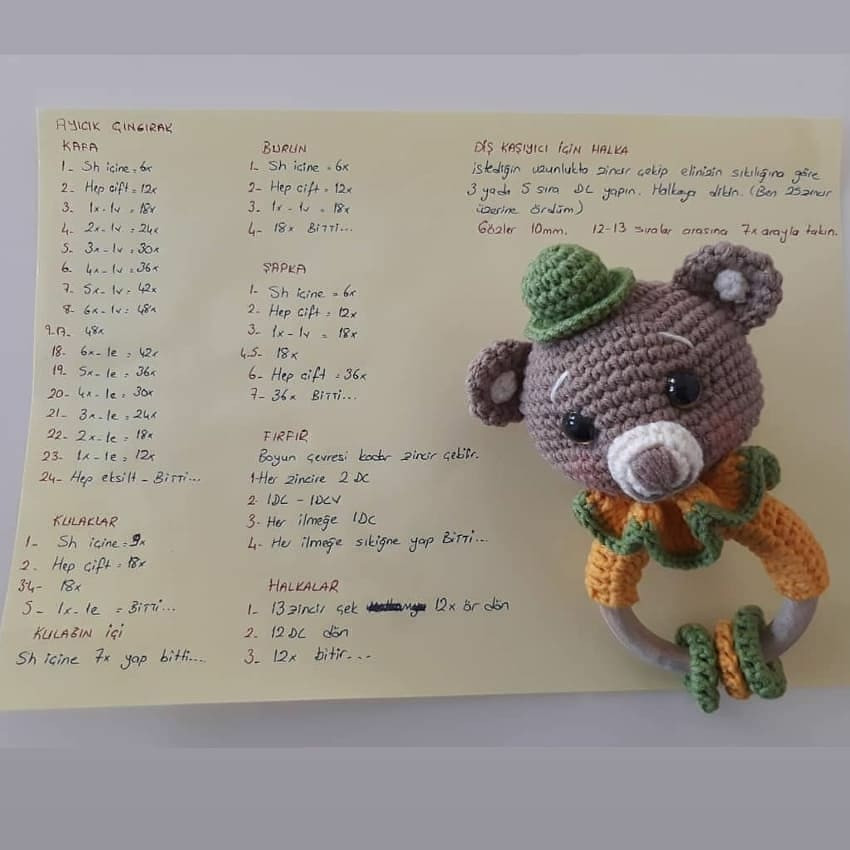 AYICIK ÇINGIRAK
KAFA
1- Sh içine = 6x
2- Hep çift = 12x
3. 1x - 1v = 18x
4. 2x - 1v = 24x
5. 3x - 1v = 30x
6. 4x - 1v = 36x
7. 5x - 1v = 42x
8- 6x - 1v = 48x
9.17- 48x
18- 6x - 1e = 42x
19. 5x - 1e = 36x
20- 4x - 1e = 30x
21- 3x - 1e = 24x
22- 2x - 1e = 18x
23- 1x - 1e = 12x
24- Hep eksilt - BiTTi...
KULAKLAR
1- Sh içine = 9x
2. Hep çift = 18x
3.4- 18x
5- 1x - 1e = BiTTi...
KULAĞIN İÇİ
Sh içine 7x yap bitti...
BURUN
1- Sh içine = 6x
2- Hep çift = 12x
3. 1x - 1v = 18x
4- 18x BiTTi...
ŞAPKA
1- Sh içine = 6x
2. Hep çift = 12x
3- 1x - 1v = 18x
4.5- 18x
6- Hep çift = 36x
7- 36x BiTTi...
FIRFIR
Boyun çevresi kadar zincir çekilir.
1- Her zincire 2 DC
2. 1DC - 1DCV
3- Her ilmeğe 1DC
4- Her ilmeğe sıkiğne yap BiTTi...
HALKALAR
1- 13 zincir çek 12x ör dön
2. 12 DC dön
3- 12x bitir...
DİŞ KAŞIYICI İÇİN HALKA
istediğin uzunlukta zincir çekip elinizin sıkılığına göre
3 yada 5 sıra DC yapın. Halkaya dikin. (Ben 25 zincir
üzerine ördüm)
Gözler 10mm. 12-13 sıralar arasına 7x arayla takın.